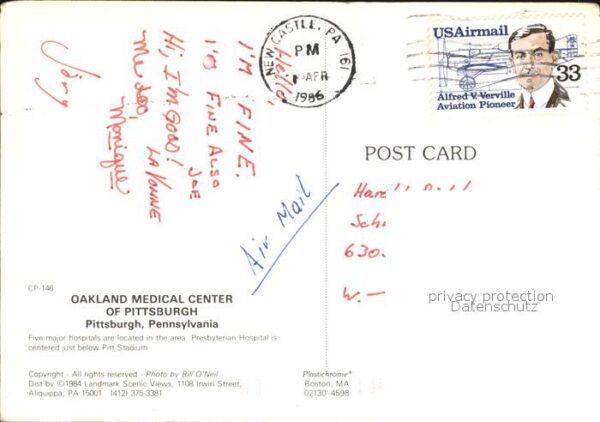 Hello,
I'M FINE.
I'm FINE ALSO
JOE
Hi, I'm GOOD!
LA VONNE
Me too,
Monique
NEW CASTLE, PA 161
PM
APR
1986
USAirmail
33
Alfred V. Verville
Aviation Pioneer
POST CARD
Air Mail
630
W.
privacy protection
Datenschutz
CP-146
OAKLAND MEDICAL CENTER
OF PITTSBURGH
Pittsburgh, Pennsylvania
Five major hospitals are located in the area. Presbyterian Hospital is
centered just below Pitt Stadium
Copyright - All rights reserved - Photo by Bill O'Neil
Dist by ©1984 Landmark Scenic Views, 1108 Irwin Street,
Aliquippa, PA 15001 (412) 375-3381
Plastichrome®
Boston, MA
02130-4598